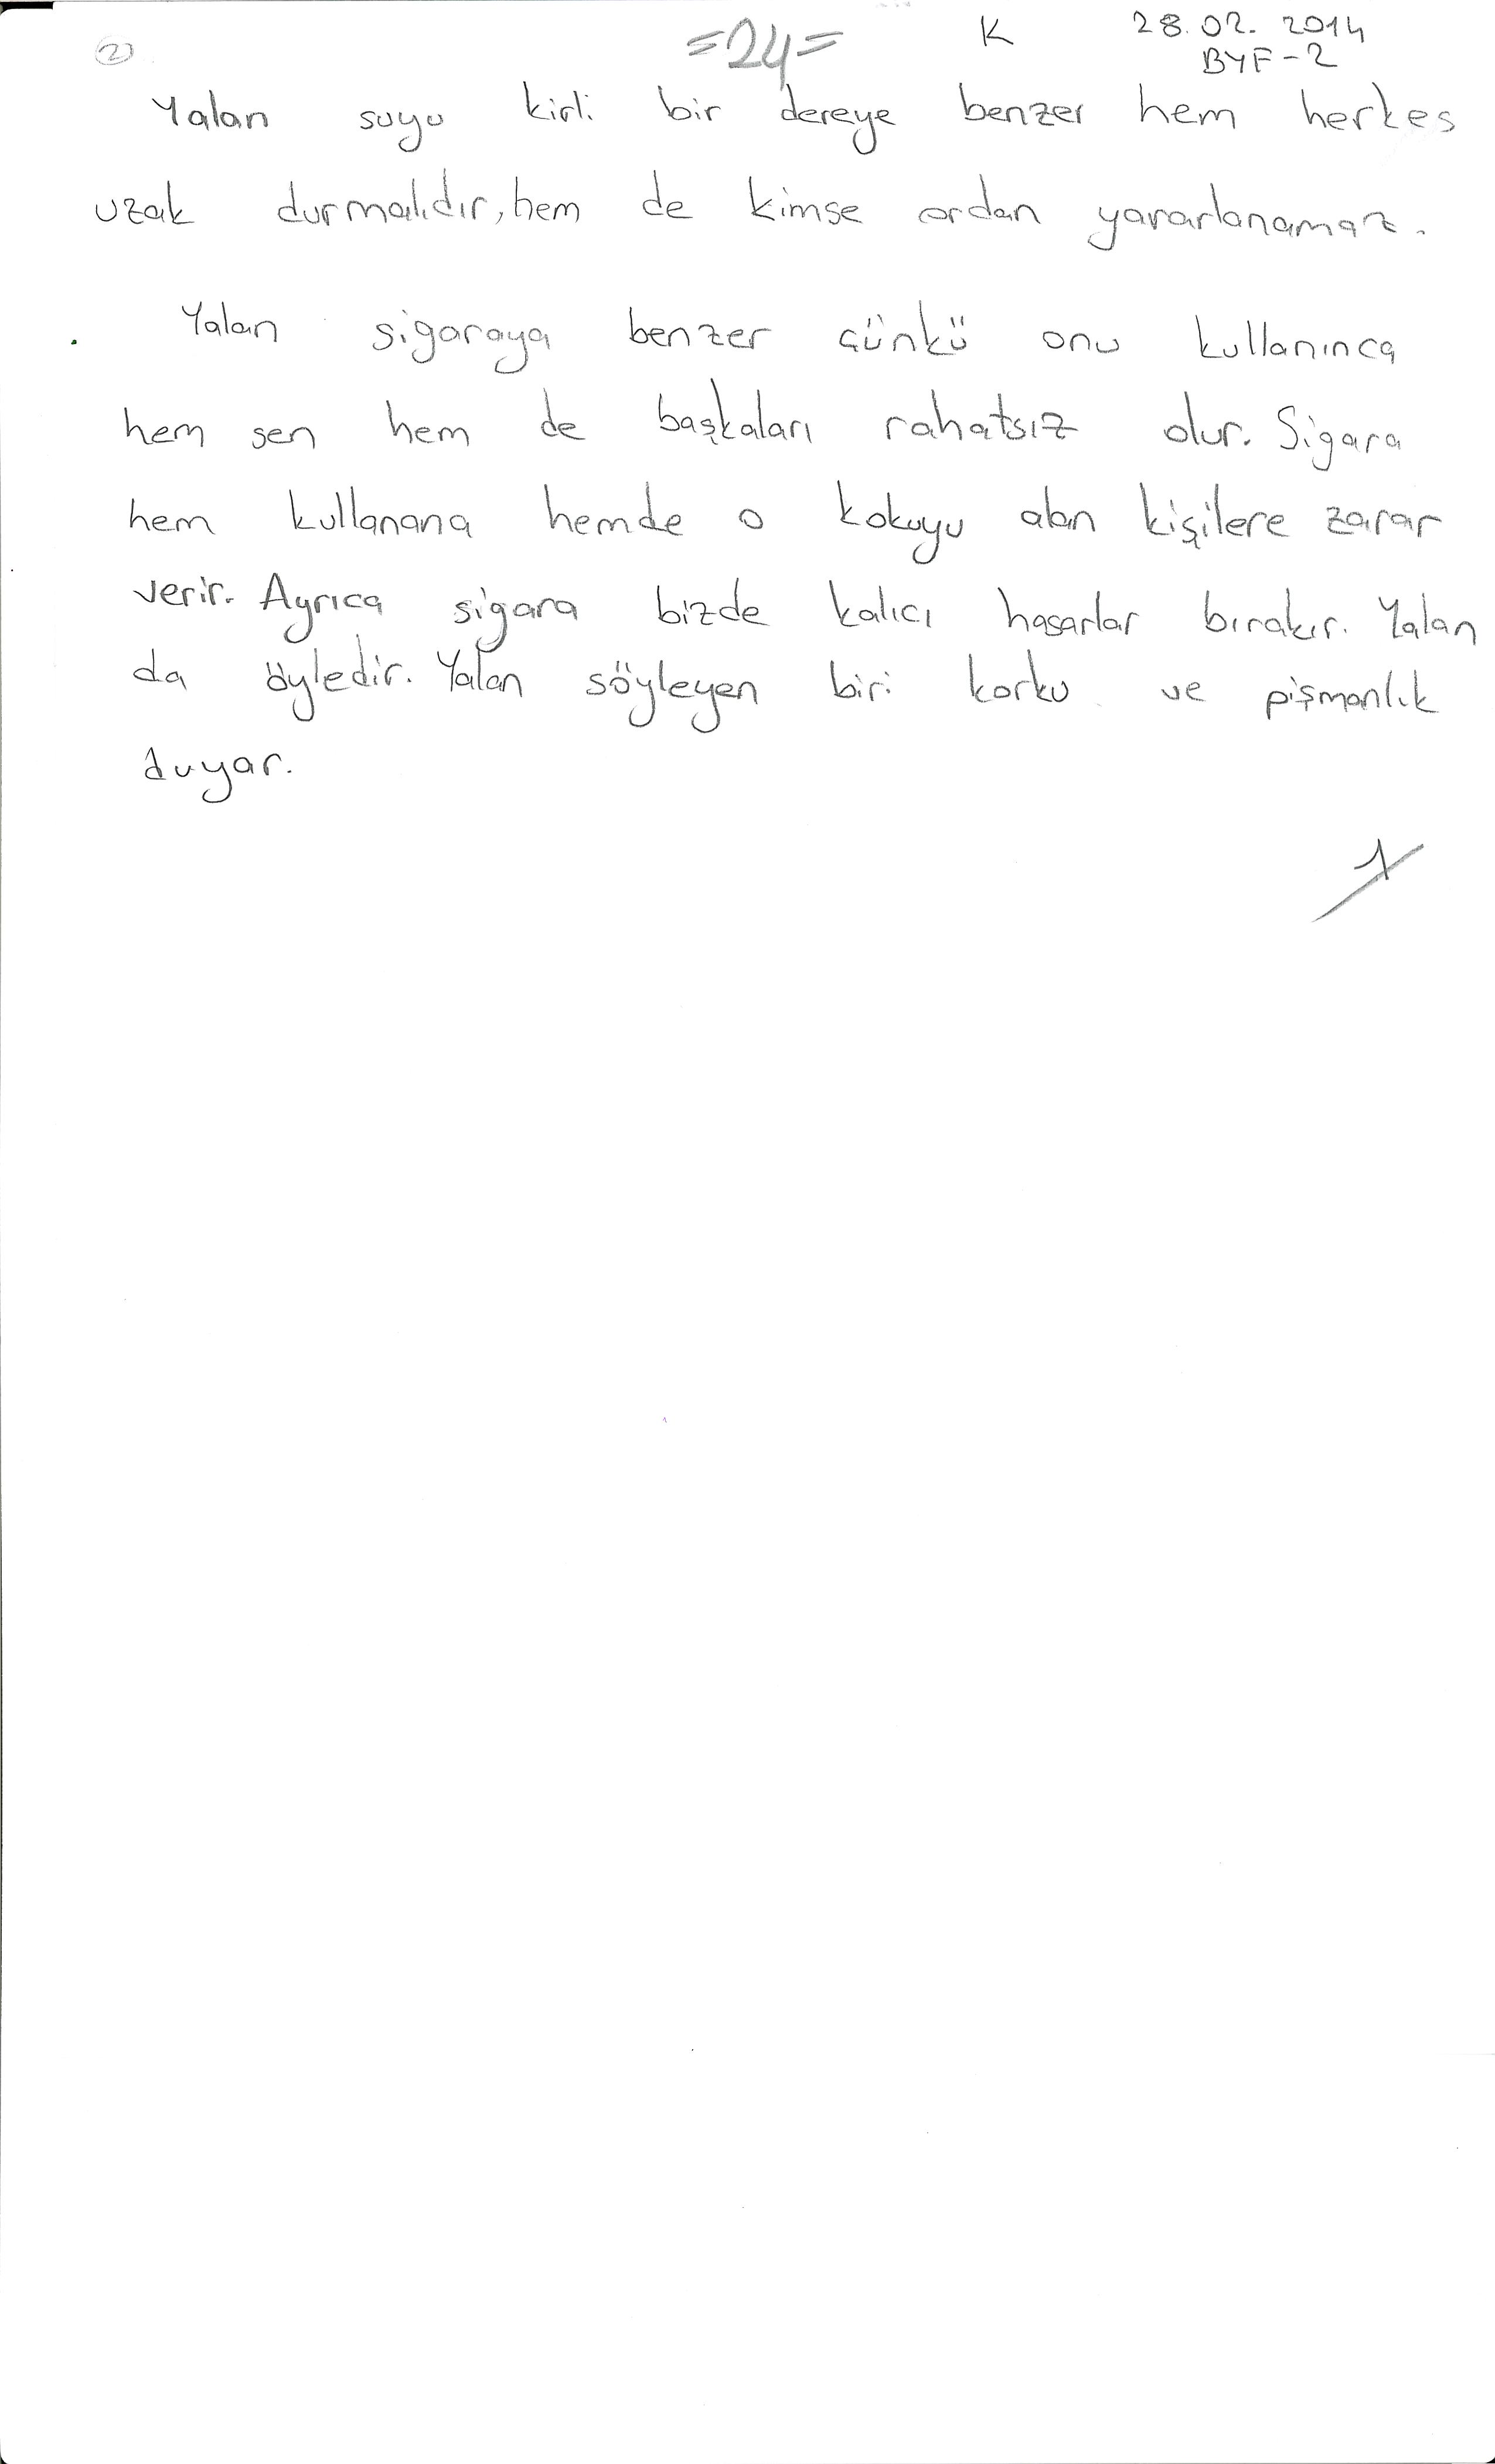 2)
=24=
K
28.02.2014
BYF-2
Yalan suyu kirli bir dereye benzer hem herkes
uzak durmalıdır, hem de kimse ordan yararlanamaz.
Yalan sigaraya benzer çünkü onu kullanınca
hem sen hem de başkaları rahatsız olur. Sigara
hem kullanana hemde o kokuyu alan kişilere zarar
verir. Ayrıca sigara bizde kalıcı hasarlar bırakır. Yalan
da öyledir. Yalan söyleyen biri korku ve pişmanlık
duyar.
1